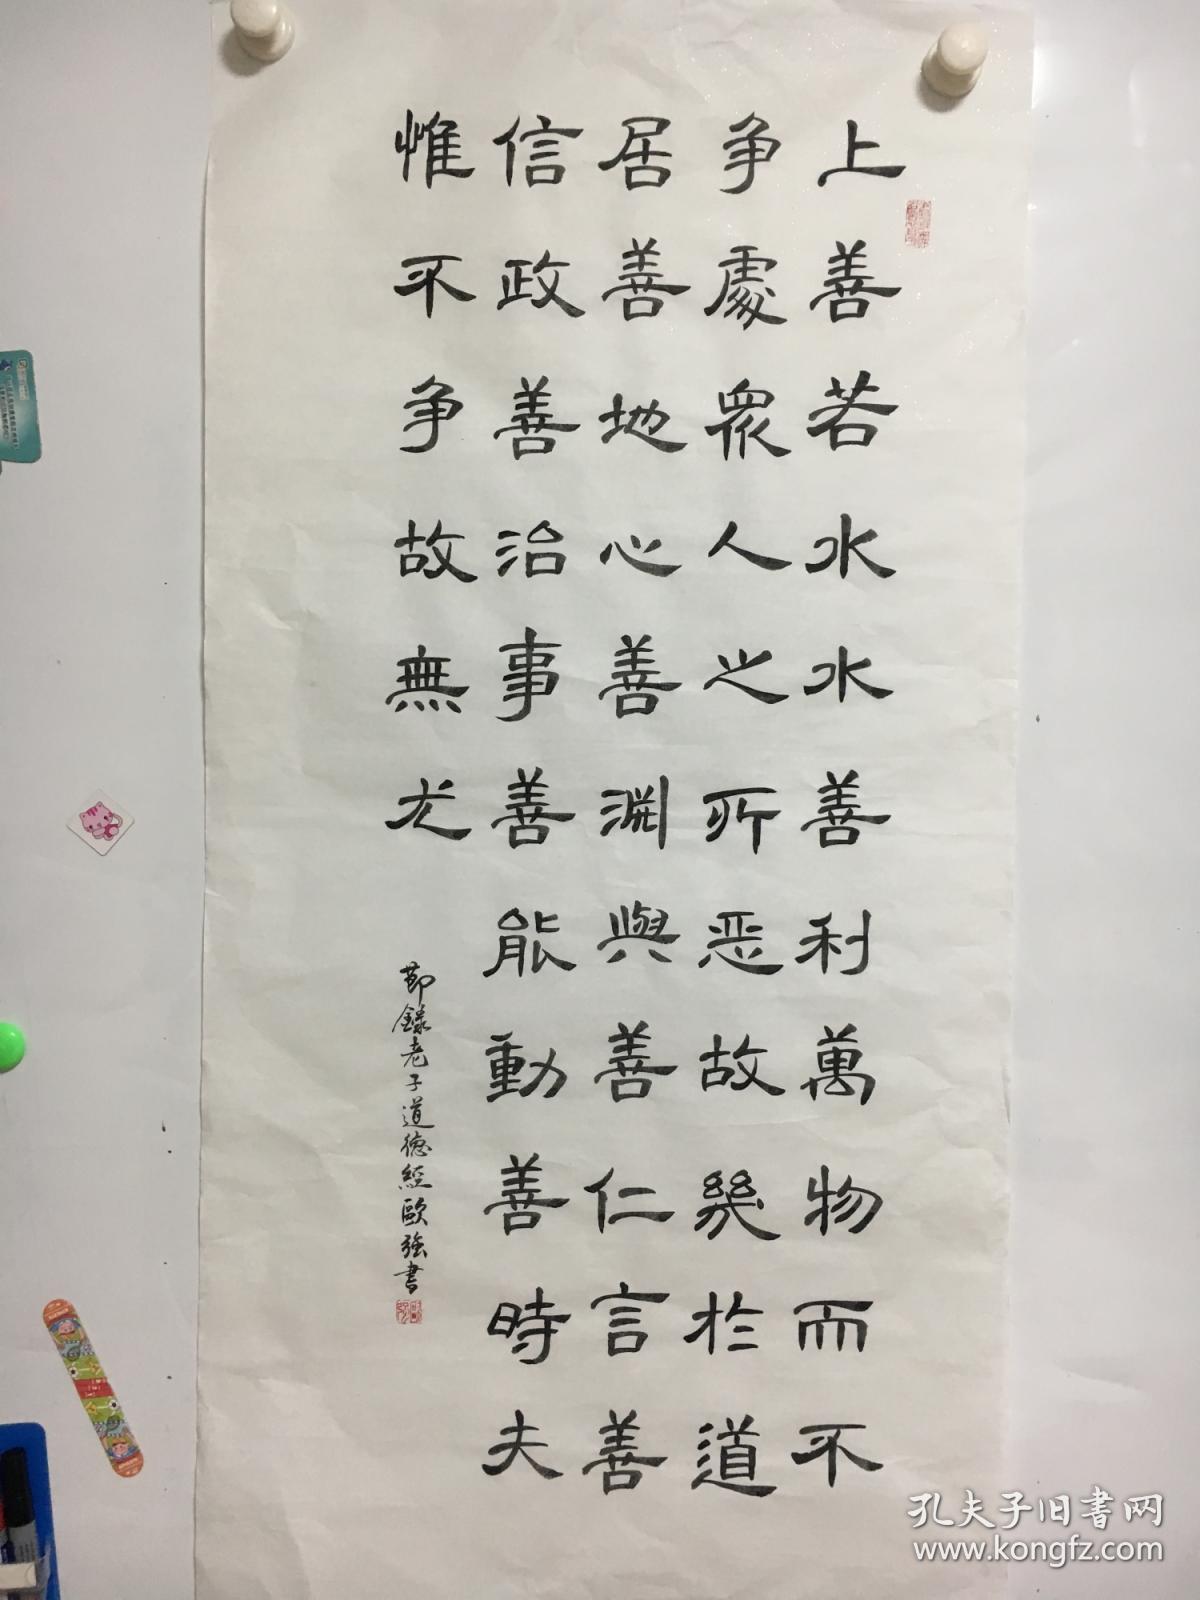 上善若水水善利萬物而不
争處眾人之所恶故幾於道
居善地心善淵與善仁言善
信政善治事善能動善時夫
惟不争故無尤
節錄老子道德經歐強書
孔夫子旧書网
www.kongfz.com